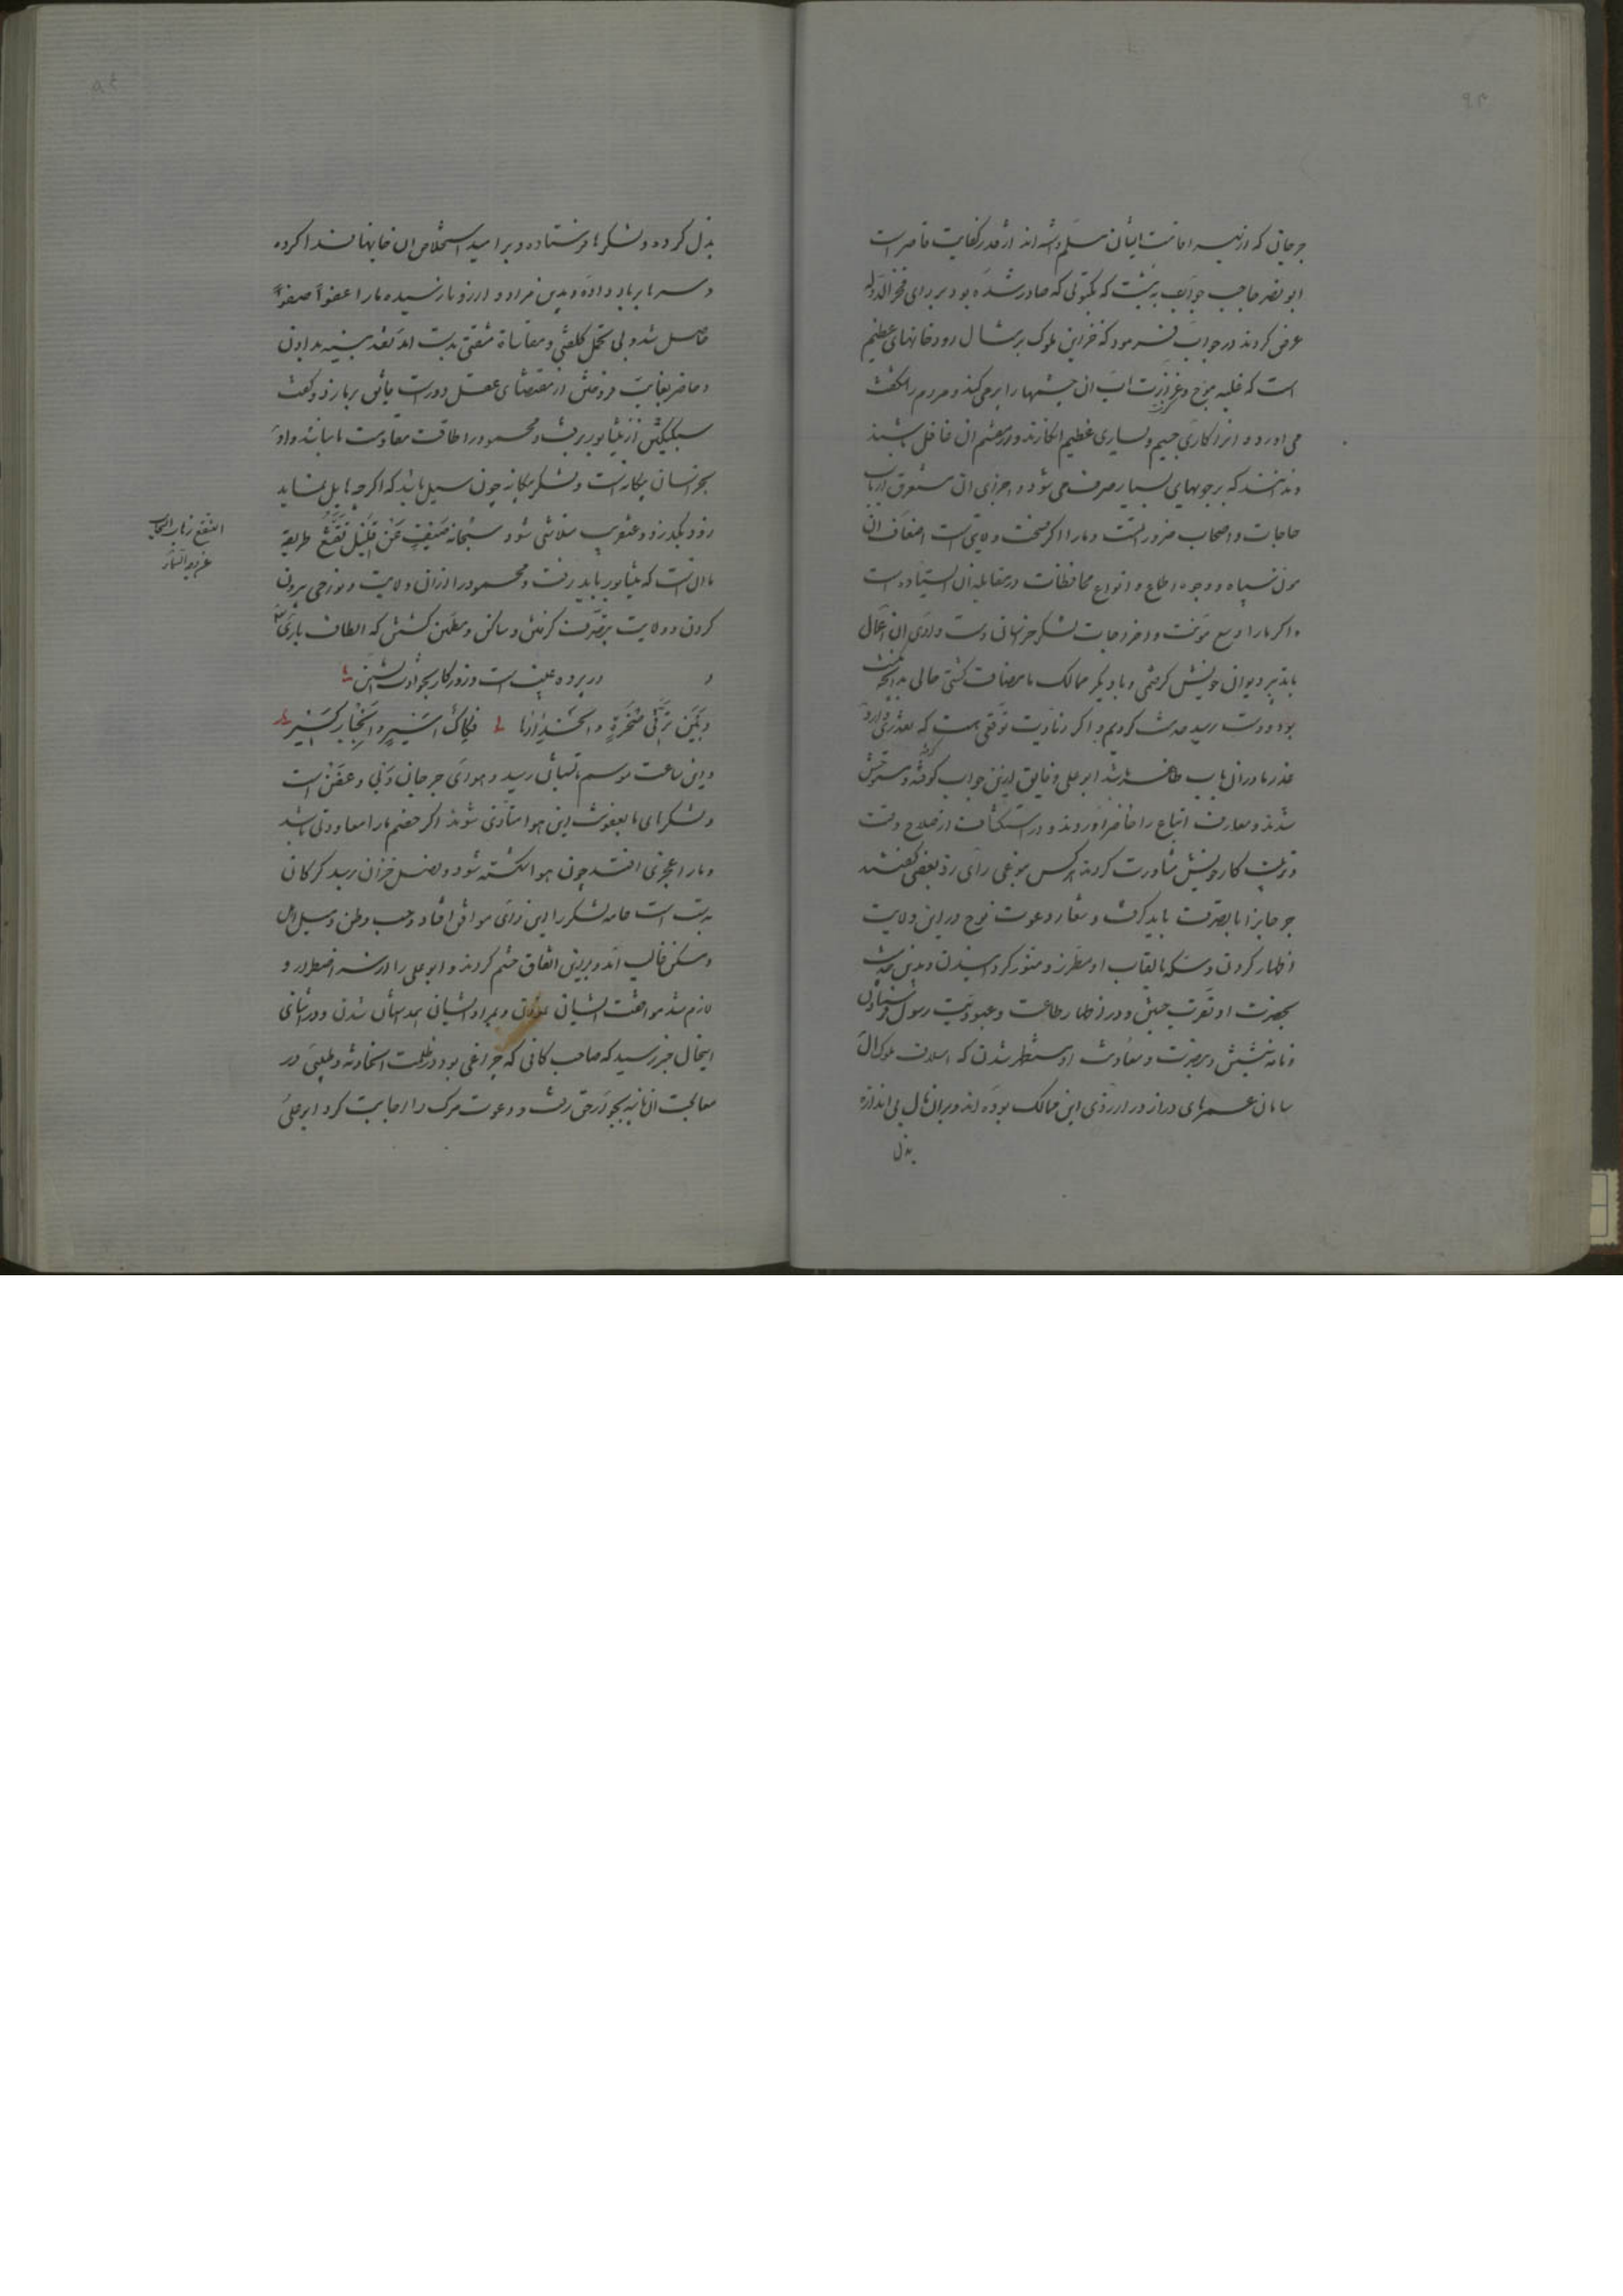 جرجانی که از پیسه اقامت ایشان مسلم داشته اند از قدر کفایت قاصر است
ابو نصر حاجب جواب نبشت که مکتوبی که صادر شده بود بر رای فخر الدوله
عرض کردند در جواب فرمود که خزاین ملوک بر مثال رودخانهای عظیم
است که غلبه موج و غزارت آب آن چشمها را برمی کند و مردم را بشگفت
می اورد و انرا کاری جسیم و یساری عظیم انگارند و از عظم آن غافل باشند
و ندانند که بر جویهای بسیار صرف می شود و اجزای آن مستغرق ارباب
حاجات و اصحاب ضرورتست و ما را اگر فسحت ولایتی است اضعاف آن
مون سپاه و وجوه اطماع و انواع محافظات در مقابله آن ایستاده است
و اگر ما را وسع مونت و اخراجات لشکر خراسان دست دادی آن اعمال
با تدبیر دیوان خویش گرفتمی و با دیگر ممالک ما مضاف گشتی حالی بدانچه
بود و دست رسید مدت کردیم و اگر زیادت توقعی هست که بعذری دارد
عذر ما در آن باب ظاهر باشد ابو علی و فایق ازین جواب کوفته و مستوحش
شدند و معارف اتباع را حاضر آوردند و در استکشاف از صلاح وقت
و ترتیب کار خویش مشاورت کردند هر کس بنوعی رای زد بعضی گفتند
جرجانرا با تصرف باید گرفت و شعار دعوت نوح در این ولایت
اظهار کردن و سکه بالقاب او مطرز و منور گردانیدن و بدین خدمت
بحضرت او تقرب جستن و در اظهار طاعت و عبودیت رسول فرستادن
و نامه نبشتن و بنصرت و معاونت او مستظهر شدن که اسلاف ملوک آل
سامان عمرهای دراز در آرزوی این ممالک بوده اند و بر آن مال بی اندازه
بذل
بذل کرده و لشکرها فرستاده و بر امید استخلاص آن خانها فدا کرده
و سرها بر باد داده و بدین مراد و آرزو نارسیده ما را عفوا صفوا
حاصل شد و بی تحمل کلفتی و مقاساة مشقتی بدست آمد نقد بنسیه دادن
و حاضر بغایب فروختن از مقتضای عقل دورست فایق برمارزد و گفت
سبکتکین از نیشابور برفت و محمود را طاقت مقاومت ما نباشد و او
بخراسان بیگانه است و لشکر بیگانه چون سیل باشد که اگر چه هایل نماید
زود بگذرد و عنقریب متلاشی شود سبحانه صیف عن قلیل تقشع طریقه
ما آن است که بنیشابور باید رفت و محمود را از آن ولایت و نواحی بیرون
کردن و ولایت بتصرف گرفتن و ساکن و مطمین نشستن که الطاف باری
و در پرده غیب است و روزگار بحوادث آبستن
فکاک اسیر و انجبار کسیر
و این ساعت موسم تابستان رسید و هوای جرجان وبی و عفن است
و لشکرهای ما بعفونت این هوا متاذی شوند اگر خصم ما را معاودتی باشد
و ما را عجزی افتد چون هوا شکسته شود و فصل خزان رسد گرگان
بدست است عامه لشکر را این رای موافق افتاد و حب وطن و میل اهل
و مسکن غالب آمد و برین اتفاق ختم کردند و ابو علی را از سر اضطرار
لازم شد موافقت ایشان نمودن و بمراد ایشان همداستان شدن و در اثنای
اینحال خبر رسید که صاحب کافی که چراغی بود در ظلمت انحادثه و طبیبی در
معالجت آن نایبه بجوار حق رفت و دعوت مرگ را اجابت کرد ابو علی
القشع ذهاب السحاب
عن وجه السماء